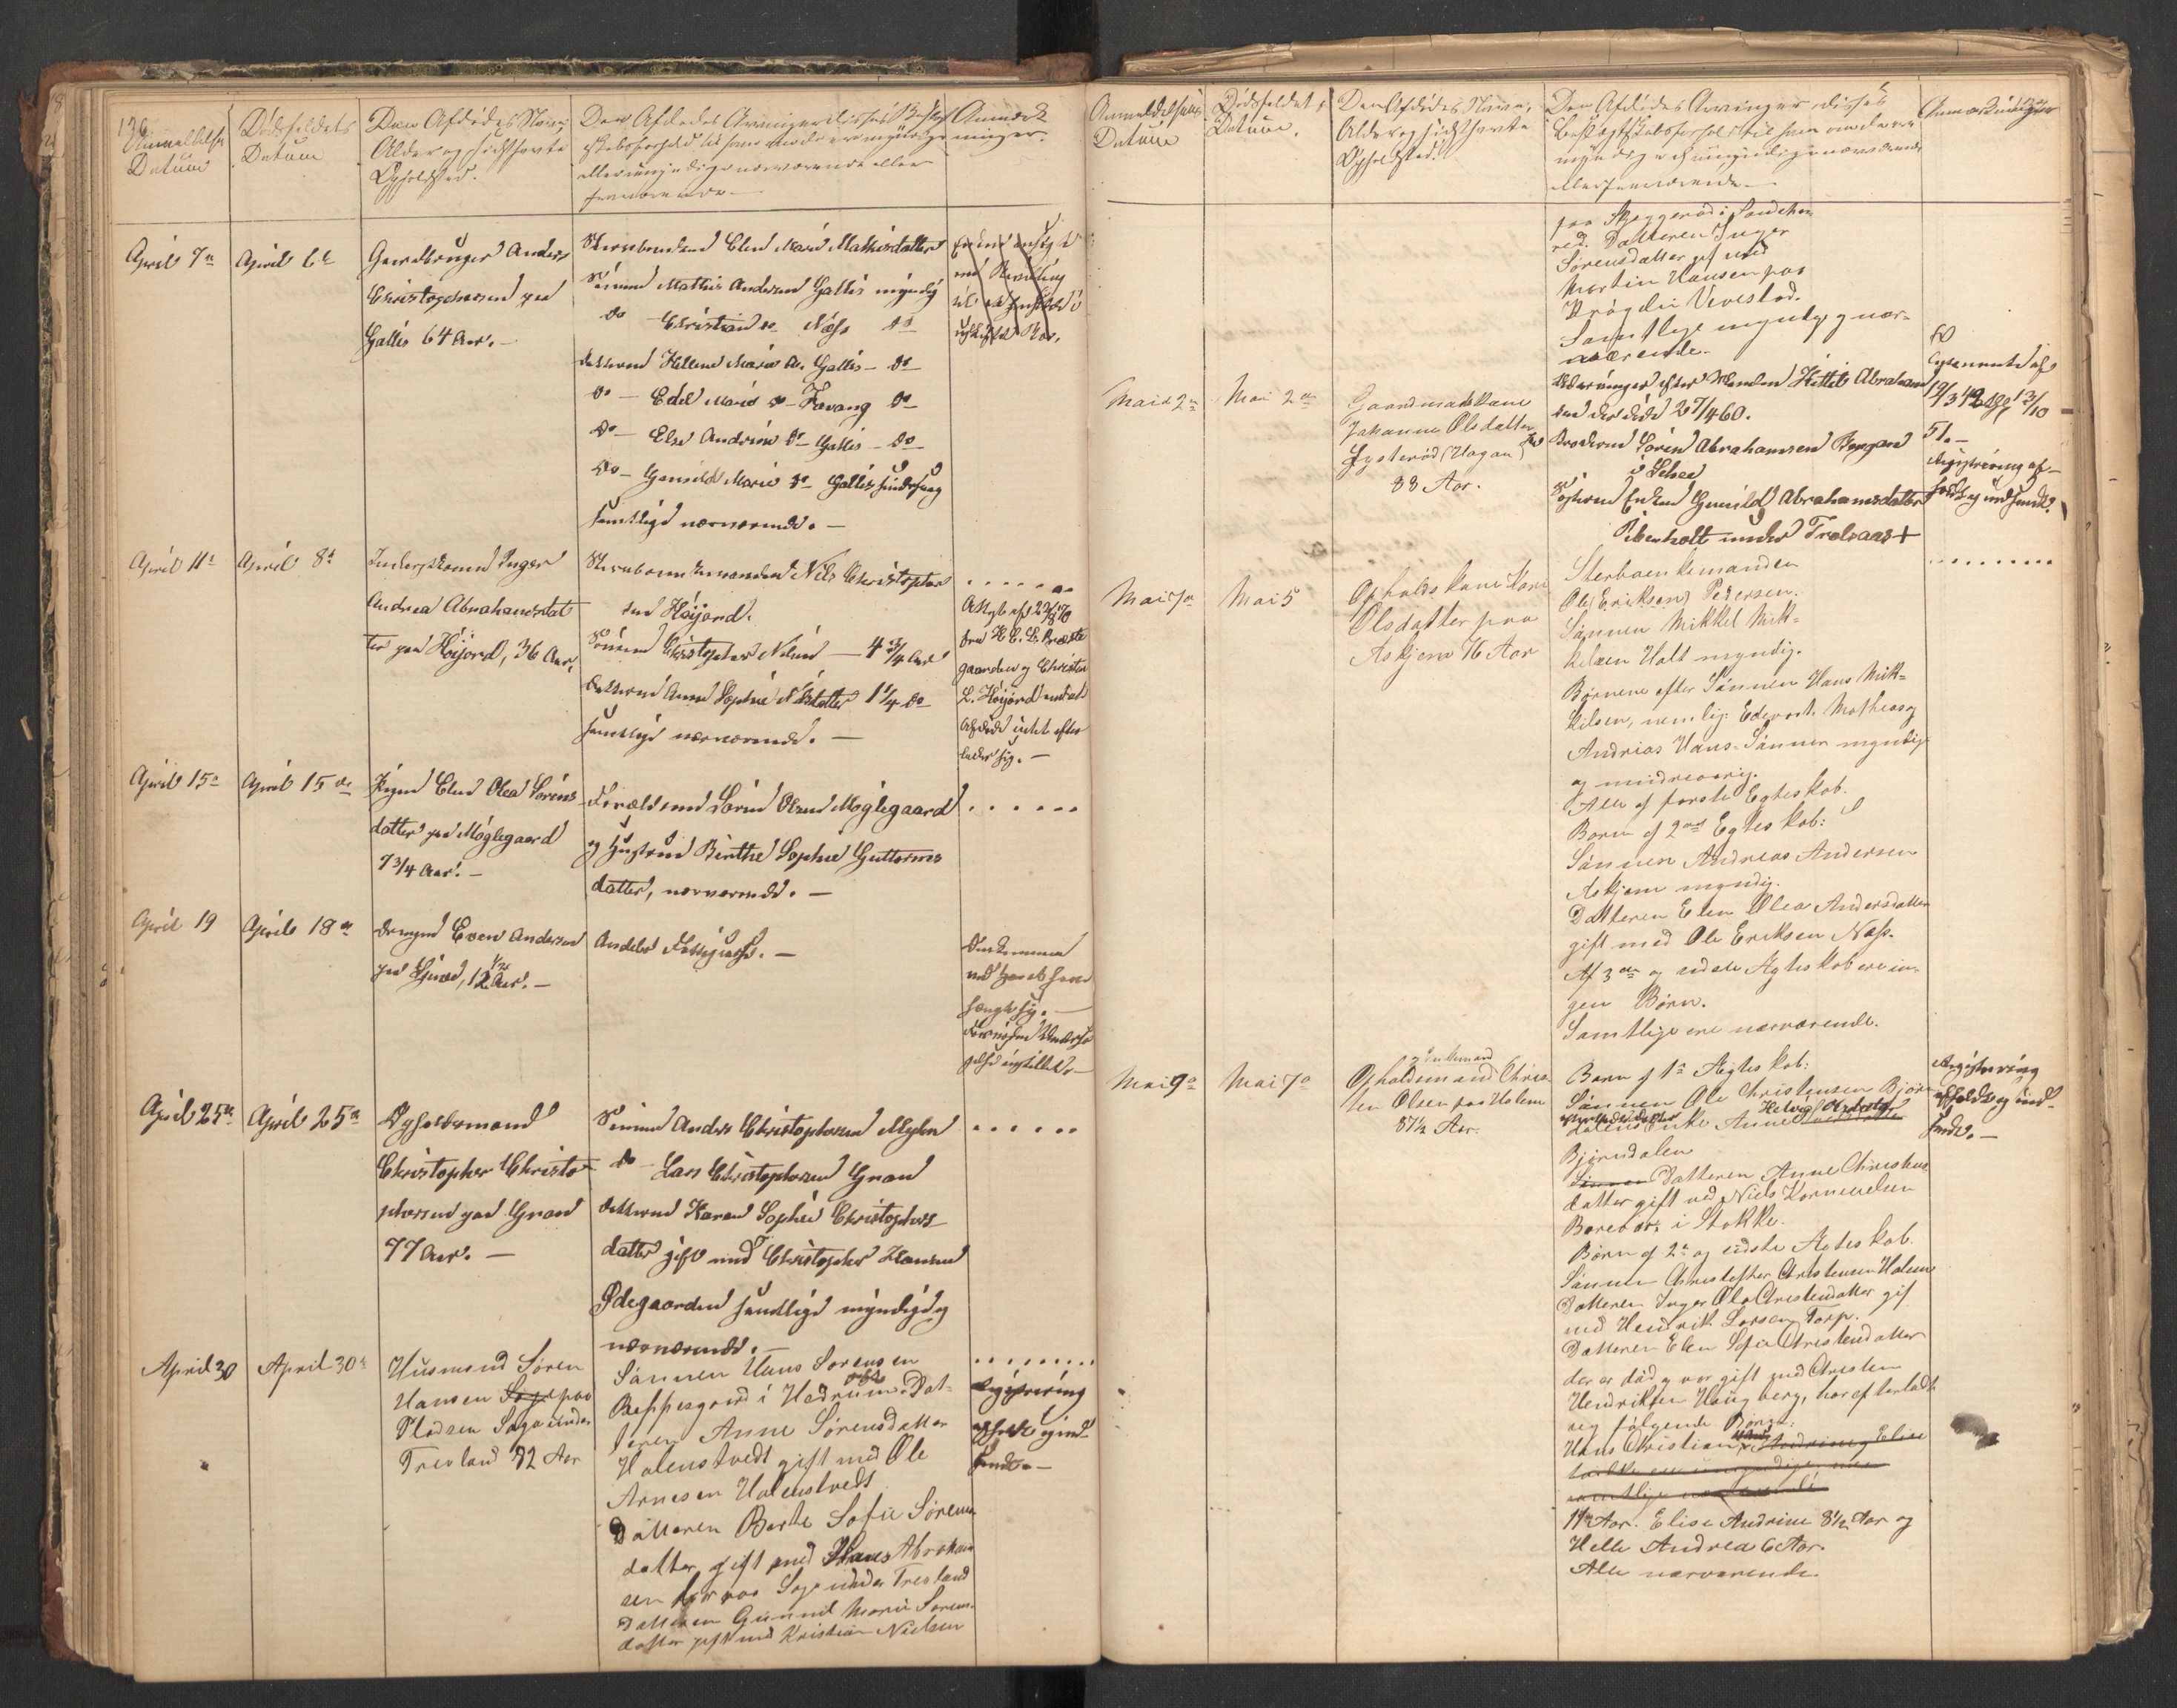 Anmeldelses
Datum
Dødsfaldets
Datum
Den Afdødes Navn,
Alder og sidst havte
Opholdsted.
Den Afdødes Arvinger disses Slægt
skabsforhold til ham om de ere myndige
eller umyndige nærværende eller
fraværende
Anmærk
ninger.
April 7de
April 6te
Gaardbruger Anders
Christophersen paa
Gallis 64 Aar.
Sterboenken Elen Marie Mathisdatter
Sønnen Mathis Andersen Gallis myndig
do Christian do Næss do
datteren Hellene Marie A. Gallis do
do Edel Marie do Favang do
do Else Andrine do Gallis do
do Gunild Marie do Gallis
samtlige nærværende.
April 11te
April 8de
Inger
Andrea Abrahamsdat
ter paa Høijord, 36 Aar.
Sterboenkemanden Nils Christopher
sen Høijord.
Sønnen Christopher Nilsen 4 3/4 Aar
datteren Anne Sophie Nilsdatter 1 1/4 do
samtlige nærværende.
Attest af 22/8 70
fra H. C. L. Præste
gaarden og Christen
L. Høijord
Afdøde intet efter
lader sig.
April 15de
April 15de
Pigen Elen Olea Sørens
datter paa Møglegaard
7 3/4 Aar.
Forældrene Søren Olsen Møglegaard
og Hustrue Birthe Sophie Guttorms
datter, nærværende.
April 19
April 18de
drengen Even Andersen
paa 12 1/2 Aar.
Andebo Fattigkasse.
April 25de
April 25de
Opholdsmand
Christopher Christo
phersen paa Gran
77 Aar.
Sønnen Anders Christophersen Myhre
do Lars Christophersen Gran
datteren Karen Sophie Christophers
datter gift med Christopher Hansen
Ødegaarden samtlige myndige og
nærværende.
April 30
April 30te
Husmand Søren
Hansen paa
Pladsen Saga under
Trevland 82 Aar
Sønnen Hans Sørensen
Beppesgard i Hedrum. Dat-
teren Anne Sørensdatter
Holenstvedt gift med Ole
Arnesen Holenstvedt
Datteren Berte Sofie Sørens
datter gift med Hans Abraham
sen paa Saga under Trevland
Datteren Gunnil Marie Sørens-
datter gift med Kristian Nielsen
Registrering
afholdt og ind-
sendt.
Anmeldelsens
Datum
Dødsfaldets
Datum.
Den Afdødes Navn,
Alder og sidst havte
Opholdsted.
Den Afdødes Arvinger disses
Slægtskabsforhold til ham om de ere
myndige eller umyndige nærværende
eller fraværende
Anmærkninger
paa Skjeggerød i Sandehe
red. Datteren Inger
Sørensdatter gift med
Martin Hansen paa
Vivestad.
Samtlige myndige og nær-
værende.
Mai 2den
Mai 2den
Gaardmandskone
Johanne Olsdatter
Fysterød (Hagan)
88 Aar.
Arvinger efter Manden Kittil Abraham
sen der døde 27/4 60.
Broderen Søren Abrahamsen
i Schee
Søsteren Enken Gunild Abrahamsdatter
Ribenholt under Trolsaas +
Testamente af
19/3 42 13/10
51.
Registrering af-
holdt og indsendt.
Mai 7de
Mai 5
Opholdskone Kari
Olsdatter paa
Askjem 76 Aar
Sterboenkemanden
Ole (Eriksen) Pedersen.
Sønnen Mikkel Mik-
kelsen Holt myndig.
Børnene efter Sønnen Hans Mik-
kelsen, nemlig: Edvart, Matheas og
Andrias Hans-Sønner myndige
og mindreaarig.
Alle af første Egteskab.
Børn af 2det Egteskab:
Sønnen Andreas Andersen
Askjem myndig.
Datteren Elen Olea Andersdatter
gift med Ole Eriksen Næss.
Af 3die og sidste Ægteskab ere in-
gen Børn.
Samtlige ere nærværende.
Mai 9de
Mai 7de
Enkemand
Opholdsmand Chris
ten Olsen paa Holem
87 1/2 Aar.
Børn af 1ste Ægteskab:
Sønnen Ole Christensen Bjørn
dalens Enke Anne Helvig
Bjørndalen
Sønnen Datteren Anne Christens
datter gift med Niels Korneliusen
Borevar i Stokke.
Børn af 2det og sidste Ægteskab.
Sønnen Christoffer Christensen Holem
Datteren Inger Olea Christensdatter gif
med Hendrik Larsen Torp.
Datteren Elen Sofie Christensdatter
der er død og var gift med Christen
Hendriksen Haugberg, har efterladt
sig følgende Børn:
Hans Christian Andrine Elise
11 Aar. Elise Andrine 8 1/2 Aar og
Helle Andrea 6 Aar.
Alle nærværende.
Registrering
afholdt og ind-
sendt.